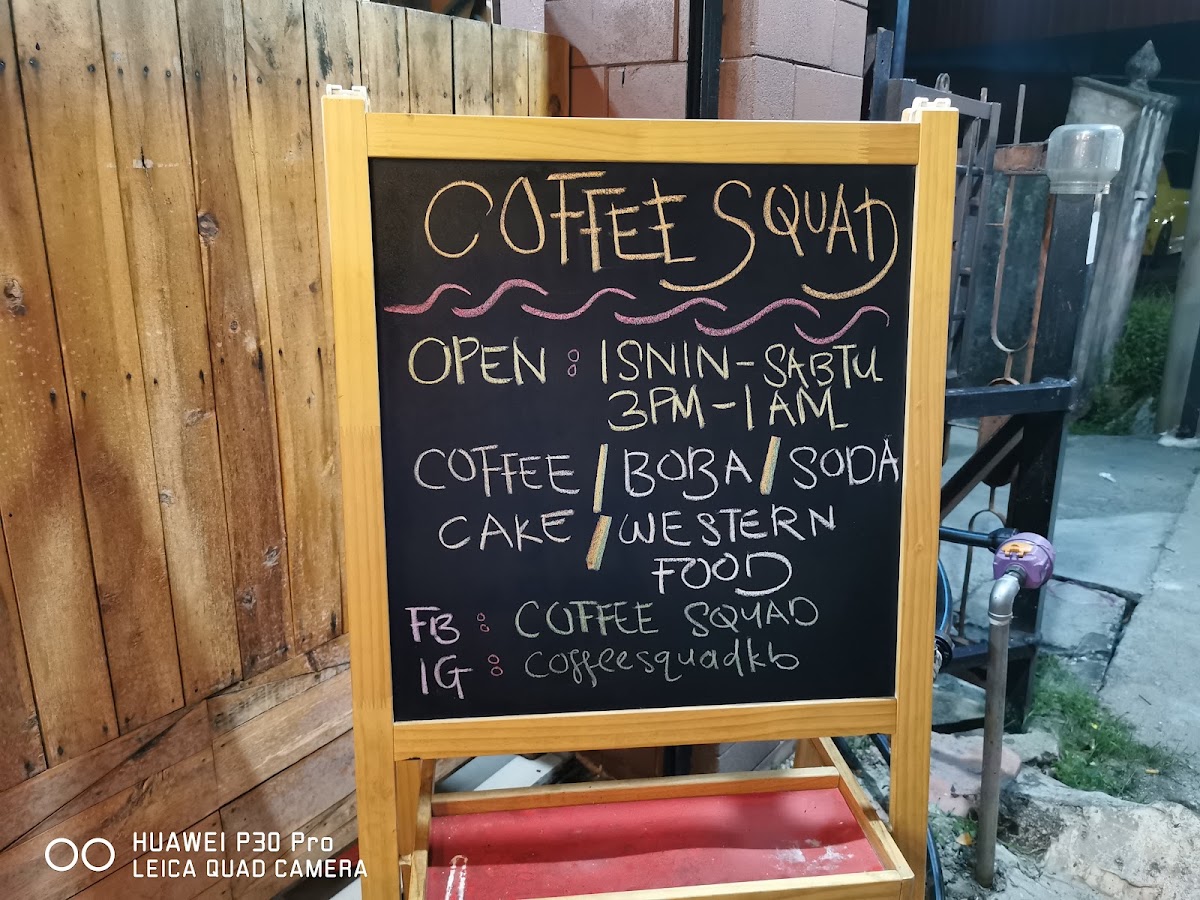 COFFEE SQUAD
OPEN : ISNIN - SABTU
3PM - 1 AM
COFFEE / BOBA / SODA
CAKE / WESTERN
FOOD
FB : COFFEE SQUAD
IG : coffeesquadkb
HUAWEI P30 Pro
LEICA QUAD CAMERA